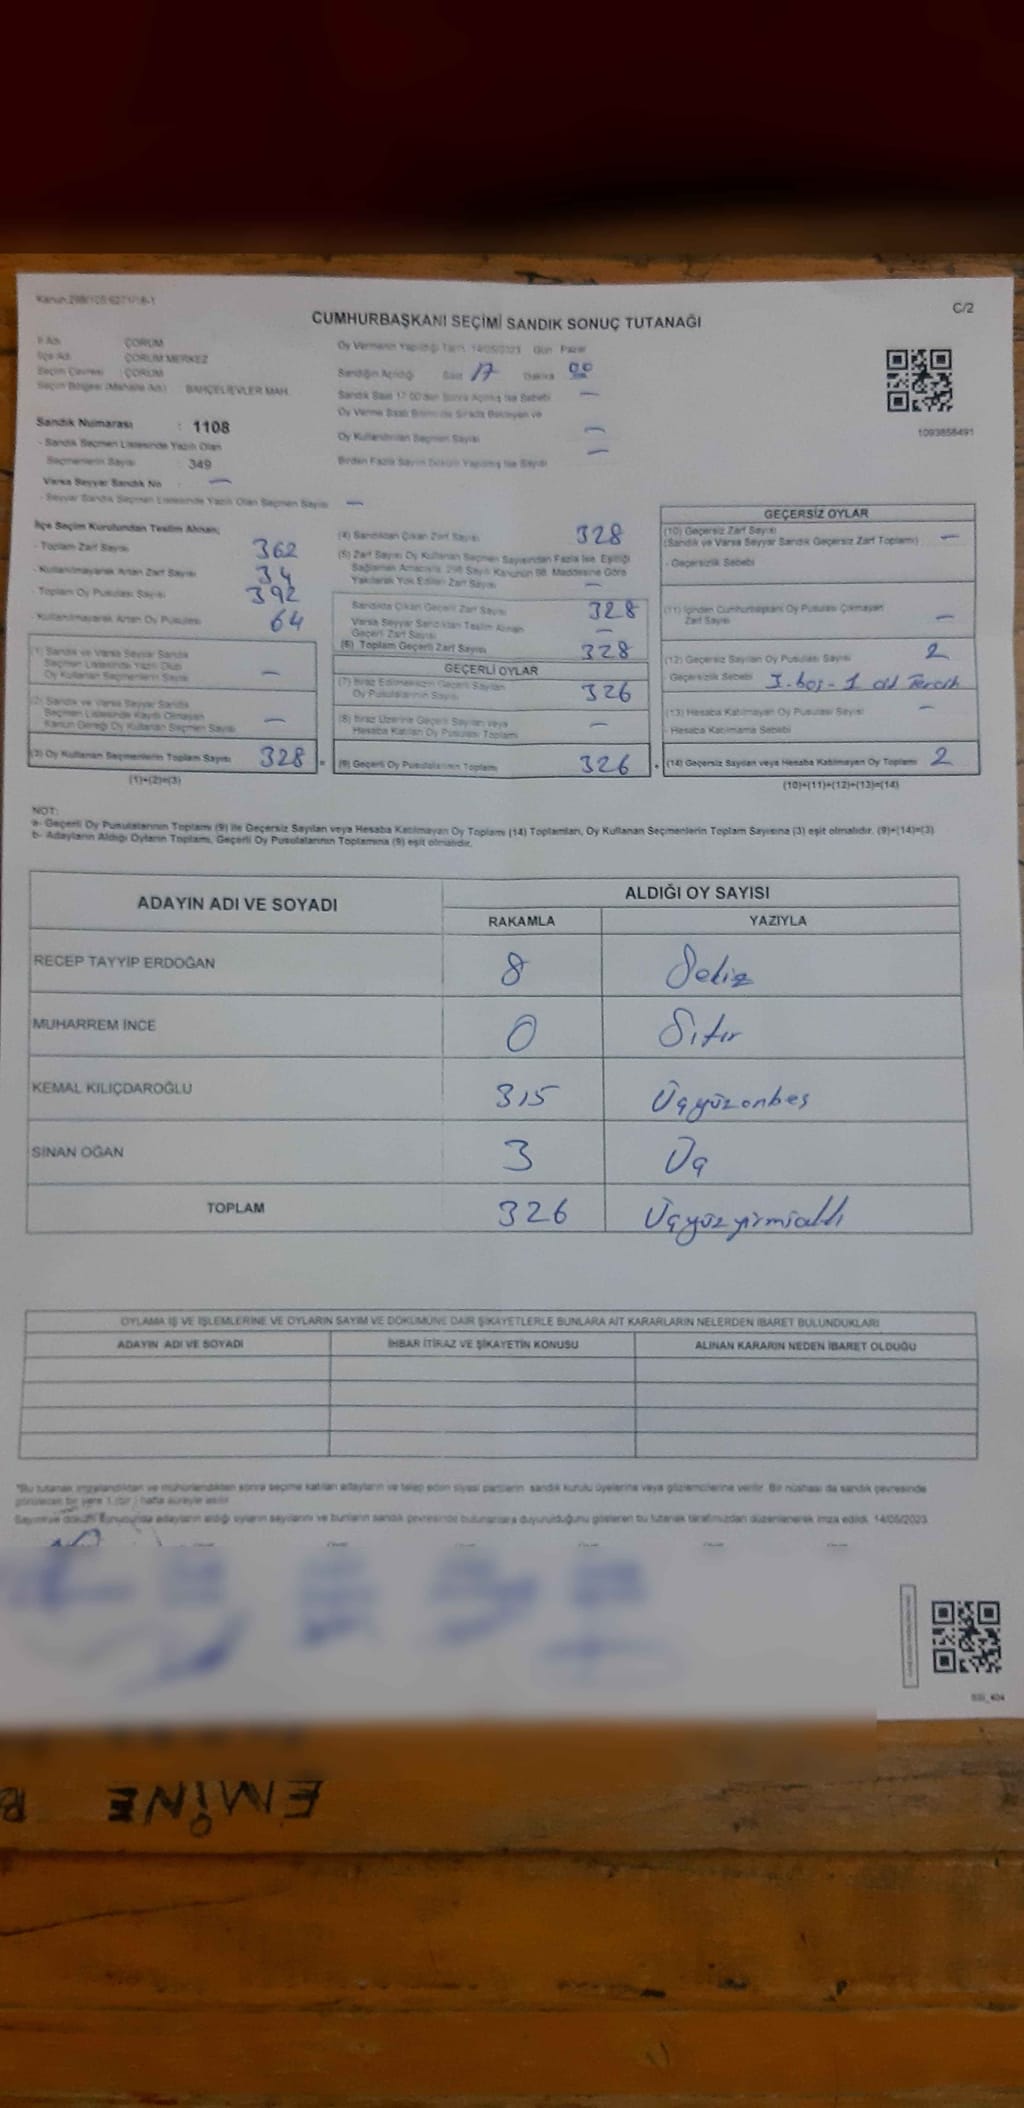 Kanun:298/105;6271/18-1
C/2
CUMHURBAŞKANI SEÇİMİ SANDIK SONUÇ TUTANAĞI
İl Adı : ÇORUM
İlçe Adı : ÇORUM MERKEZ
Seçim Çevresi : ÇORUM
Seçim Bölgesi (Mahalle Adı) : BAHÇELİEVLER MAH.
Sandık Numarası : 1108
- Sandık Seçmen Listesinde Yazılı Olan
Seçmenlerin Sayısı : 349
Varsa Seyyar Sandık No : —
- Seyyar Sandık Seçmen Listesinde Yazılı Olan Seçmen Sayısı : —
Oy Vermenin Yapıldığı Tarih 14/05/2023 Gün Pazar
Sandığın Açıldığı Saat 17 Dakika 00
Sandık Saat 17:00'den Sonra Açılmış İse Sebebi —
Oy Verme Saati Bitiminde Sırada Bekleyen ve
Oy Kullandırılan Seçmen Sayısı —
Birden Fazla Sayım Döküm Yapılmış İse Sayısı —
1093858491
İlçe Seçim Kurulundan Teslim Alınan;
- Toplam Zarf Sayısı 362
- Kullanılmayarak Artan Zarf Sayısı 34
- Toplam Oy Pusulası Sayısı 392
- Kullanılmayarak Artan Oy Pusulası 64
(1) Sandık ve Varsa Seyyar Sandık
Seçmen Listesinde Yazılı Olup
Oy Kullanan Seçmenlerin Sayısı —
(2) Sandık ve Varsa Seyyar Sandık
Seçmen Listesinde Kayıtlı Olmayan
Kanun Gereği Oy Kullanan Seçmen Sayısı —
(3) Oy Kullanan Seçmenlerin Toplam Sayısı 328
(1)+(2)=(3)
(4) Sandıktan Çıkan Zarf Sayısı 328
(5) Zarf Sayısı Oy Kullanan Seçmen Sayısından Fazla İse, Eşitliği
Sağlamak Amacıyla, 298 Sayılı Kanunun 98. Maddesine Göre
Yakılarak Yok Edilen Zarf Sayısı —
Sandıkta Çıkan Geçerli Zarf Sayısı 328
Varsa Seyyar Sandıktan Teslim Alınan
Geçerli Zarf Sayısı —
(6) Toplam Geçerli Zarf Sayısı 328
GEÇERLİ OYLAR
(7) İtiraz Edilmeksizin Geçerli Sayılan
Oy Pusulalarının Sayısı 326
(8) İtiraz Üzerine Geçerli Sayılan veya
Hesaba Katılan Oy Pusulası Toplamı —
(9) Geçerli Oy Pusulalarının Toplamı 326
GEÇERSİZ OYLAR
(10) Geçersiz Zarf Sayısı
(Sandık ve Varsa Seyyar Sandık Geçersiz Zarf Toplamı) —
- Geçersizlik Sebebi
(11) İçinden Cumhurbaşkanı Oy Pusulası Çıkmayan
Zarf Sayısı —
(12) Geçersiz Sayılan Oy Pusulası Sayısı 2
Geçersizlik Sebebi 1 Tercih
(13) Hesaba Katılmayan Oy Pusulası Sayısı —
- Hesaba Katılmama Sebebi
(14) Geçersiz Sayılan veya Hesaba Katılmayan Oy Toplamı 2
(10)+(11)+(12)+(13)=(14)
NOT:
a- Geçerli Oy Pusulalarının Toplamı (9) ile Geçersiz Sayılan veya Hesaba Katılmayan Oy Toplamı (14) Toplamları, Oy Kullanan Seçmenlerin Toplam Sayısına (3) eşit olmalıdır. (9)+(14)=(3)
b- Adayların Aldığı Oyların Toplamı, Geçerli Oy Pusulalarının Toplamına (9) eşit olmalıdır.
ADAYIN ADI VE SOYADI ALDIĞI OY SAYISI
RAKAMLA YAZIYLA
RECEP TAYYİP ERDOĞAN 8 Sekiz
MUHARREM İNCE 0 Sıfır
KEMAL KILIÇDAROĞLU 315 Üçyüzonbeş
SİNAN OĞAN 3 Üç
TOPLAM 326 Üçyüzyirmialtı
OYLAMA İŞ VE İŞLEMLERİNE VE OYLARIN SAYIM VE DÖKÜMÜNE DAİR ŞİKAYETLERLE BUNLARA AİT KARARLARIN NELERDEN İBARET BULUNDUKLARI
ADAYIN ADI VE SOYADI İHBAR İTİRAZ VE ŞİKAYETİN KONUSU ALINAN KARARIN NEDEN İBARET OLDUĞU
*Bu tutanak imzalandıktan ve mühürlendikten sonra seçime katılan adayların ve talep eden siyasi partilerin sandık kurulu üyelerine veya gözlemcilerine verilir. Bir nüshası da sandık çevresinde
görülecek bir yere 1 (bir) hafta süreyle asılır.
Sayım ve döküm sonucunda adayların aldığı oyların sayılarını ve bunların sandık çevresinde bulunanlara duyurulduğunu gösteren bu tutanak tarafımızdan düzenlenerek imza edildi. 14/05/2023
EMİNE